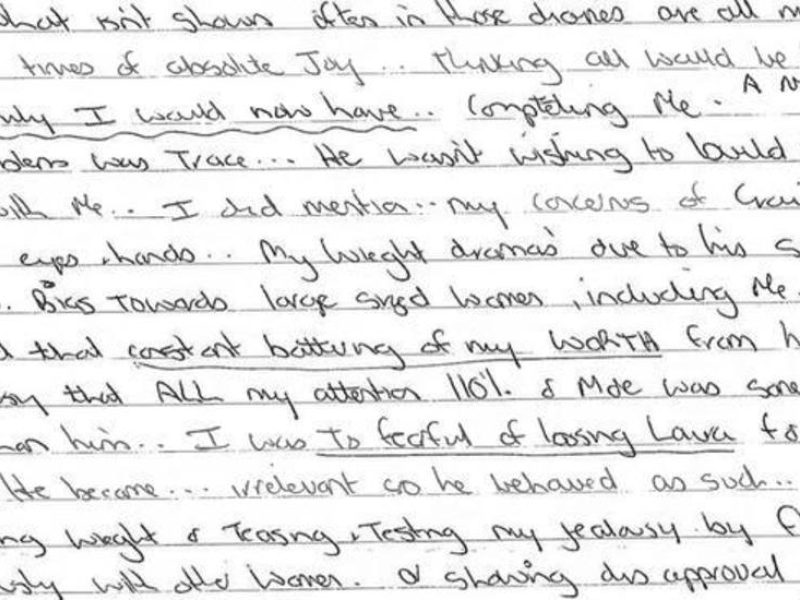 that isn't shown often in those diaries are all m
times of absolute Joy... thinking all would be
why I would now have.. Completing Me. A N
was Trace... He wasn't wishing to build
with Me.. I did mention.. my concerns of
eyes, hands.. My Weight dramas due to his S
. Bias Towards large sized women, including Me.
d that constant battering of my WORTH from h
that ALL my attention 110% & More was some
him.. I was To fearful of loosing Laura fo
He became... irrelevant so he behaved as such..
ng weight & Teasing, Testing my jealousy by f
sly with other women. & showing dis approval